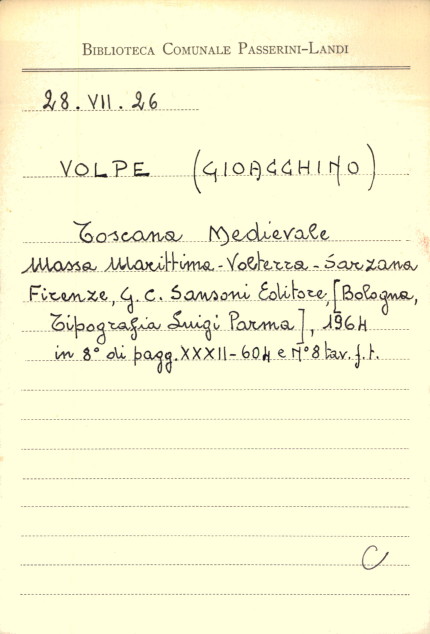 BIBLIOTECA COMUNALE PASSERINI-LANDI
28.VII.26
VOLPE (GIOACCHINO)
Toscana Medievale
Massa Marittima - Volterra - Sarzana
Firenze, G. C. Sansoni Editore, [Bologna,
Tipografia Luigi Parma], 1964
in 8° di pagg. XXXII-604 e N° 8 tav. f. t.
C